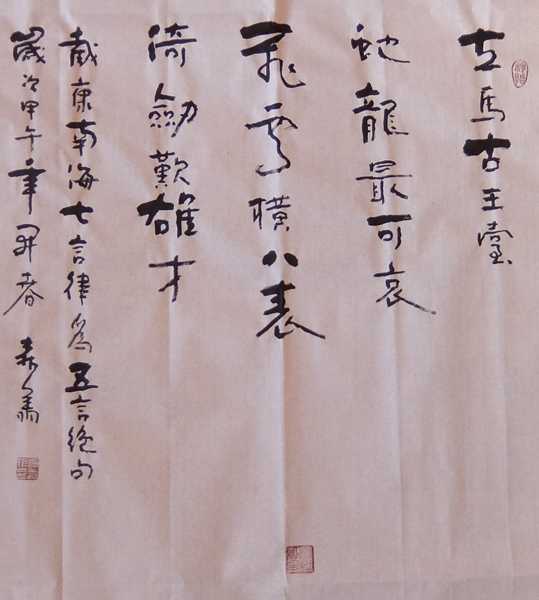 立馬古王臺
虵龍最可哀
飛雲橫八表
倚劍歎雄才
截康南海七言律為五言絕句
歲次甲午年開春